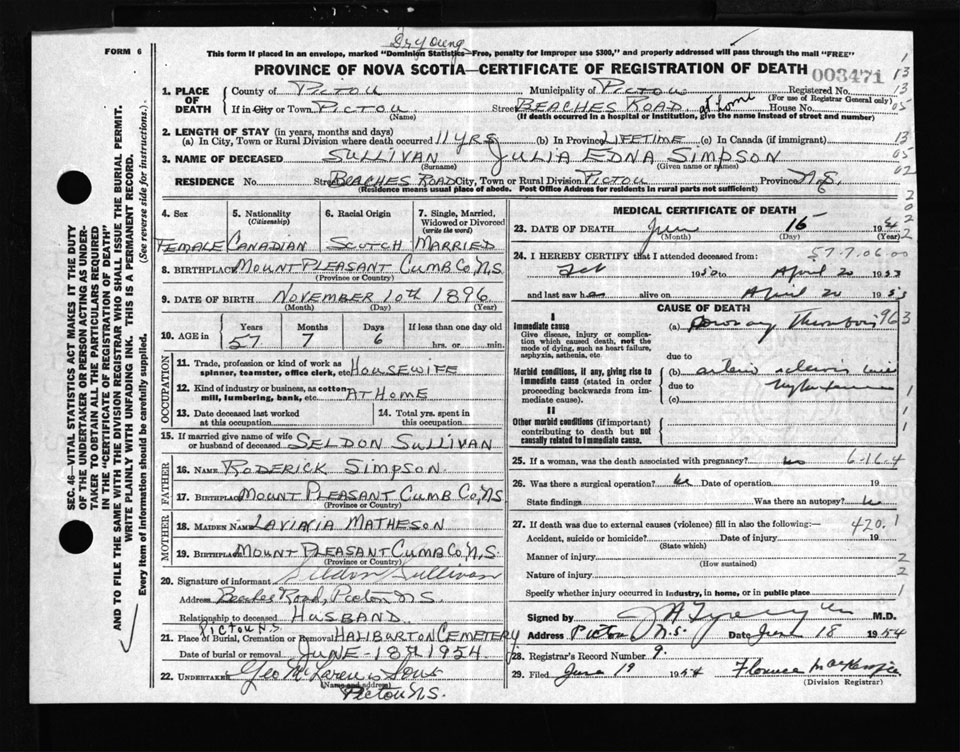 Dr Young
FORM 6
This form if placed in an envelope, marked "Dominion Statistics—Free, penalty for improper use $300," and properly addressed will pass through the mail "FREE"
PROVINCE OF NOVA SCOTIA—CERTIFICATE OF REGISTRATION OF DEATH
003471
1. PLACE OF DEATH
County of PICTOU Municipality of PICTOU Registered No.
(For use of Registrar General only)
If in City or Town PICTOU Street BEACHES ROAD at home House No.
(Name) (If death occurred in a hospital or Institution, give the name instead of street and number)
2. LENGTH OF STAY (in years, months and days)
(a) In City, Town or Rural Division where death occurred 11 YRS (b) In Province LIFETIME (c) In Canada (if immigrant)
3. NAME OF DECEASED SULLIVAN JULIA EDNA SIMPSON
(Surname) (Given name or names)
RESIDENCE No. Street BEACHES ROAD City, Town or Rural Division PICTOU Province N.S.
(Residence means usual place of abode. Post Office Address for residents in rural parts not sufficient)
1
13
13
05
13
05
02
2
0
2
2
SEC. 46—VITAL STATISTICS ACT MAKES IT THE DUTY
OF THE UNDERTAKER OR PERSON ACTING AS UNDER-
TAKER TO OBTAIN ALL THE PARTICULARS REQUIRED
IN THE "CERTIFICATE OF REGISTRATION OF DEATH"
AND TO FILE THE SAME WITH THE DIVISION REGISTRAR WHO SHALL ISSUE THE BURIAL PERMIT.
WRITE PLAINLY WITH UNFADING INK. THIS IS A PERMANENT RECORD.
Every item of information should be carefully supplied. (See reverse side for instructions.)
4. Sex
5. Nationality
(Citizenship)
6. Racial Origin
7. Single, Married,
Widowed or Divorced
(write the word)
FEMALE CANADIAN SCOTCH MARRIED
8. BIRTHPLACE MOUNT PLEASANT CUMB CO, N.S.
(Province or Country)
9. DATE OF BIRTH NOVEMBER 10TH 1896
(Month) (Day) (Year)
10. AGE in
Years Months Days If less than one day old
57 7 6 hrs. or min.
OCCUPATION
11. Trade, profession or kind of work as
spinner, teamster, office clerk, etc. HOUSEWIFE
12. Kind of industry or business, as cotton
mill, lumbering, bank, etc. AT HOME
13. Date deceased last worked
at this occupation
14. Total yrs. spent in
this occupation
15. If married give name of wife
or husband of deceased SELDON SULLIVAN
FATHER
16. NAME RODERICK SIMPSON
17. BIRTHPLACE MOUNT PLEASANT CUMB CO, N.S
(Province or Country)
MOTHER
18. MAIDEN NAME MATHESON
19. BIRTHPLACE MOUNT PLEASANT CUMB CO, N.S.
(Province or Country)
20. Signature of informant Seldon Sullivan
Address Beaches Road, Pictou N S.
Relationship to deceased HUSBAND
PICTOU N.S
21. Place of Burial, Cremation or Removal HALIBURTON CEMETERY
Date of burial or removal JUNE - 18TH 1954
22. UNDERTAKER Geo McLaren & Sons
(Name and address)
PICTOU N.S.
MEDICAL CERTIFICATE OF DEATH
23. DATE OF DEATH June 15 1954
(Month) (Day) (Year)
24. I HEREBY CERTIFY that I attended deceased from: 57.7.06.00
Feb 1950 to April 20 1953
and last saw her alive on April 20 1953
CAUSE OF DEATH
I
Immediate cause
Give disease, injury or complica-
tion which caused death, not the
mode of dying, such as heart failure,
asphyxia, asthenia, etc
(a) Coronary Thrombosis 963
due to
Morbid conditions, if any, giving rise to
immediate cause (stated in order
proceeding backwards from im-
mediate cause).
(b)
due to
(c)
II
Other morbid conditions (if important)
contributing to death but not
causally related to immediate cause.
25. If a woman, was the death associated with pregnancy? no 6-16-4
26. Was there a surgical operation? no Date of operation 19
State findings Was there an autopsy? no
27. If death was due to external causes (violence) fill in also the following:— 420.1
Accident, suicide or homicide? Date of injury 19
(State which)
Manner of injury 2
(How sustained)
Nature of injury 2
Specify whether injury occurred in industry, in home, or in public place 1
Signed by M.D.
Address Pictou N.S. Date June 18 1954
28. Registrar's Record Number 9.
29. Filed June 19 1954 Florence MacKenzie
(Division Registrar)